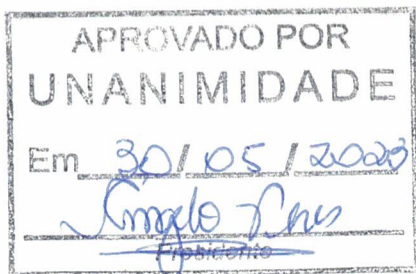 APROVADO POR
UNANIMIDADE
Em 30/05/2023
Presidente